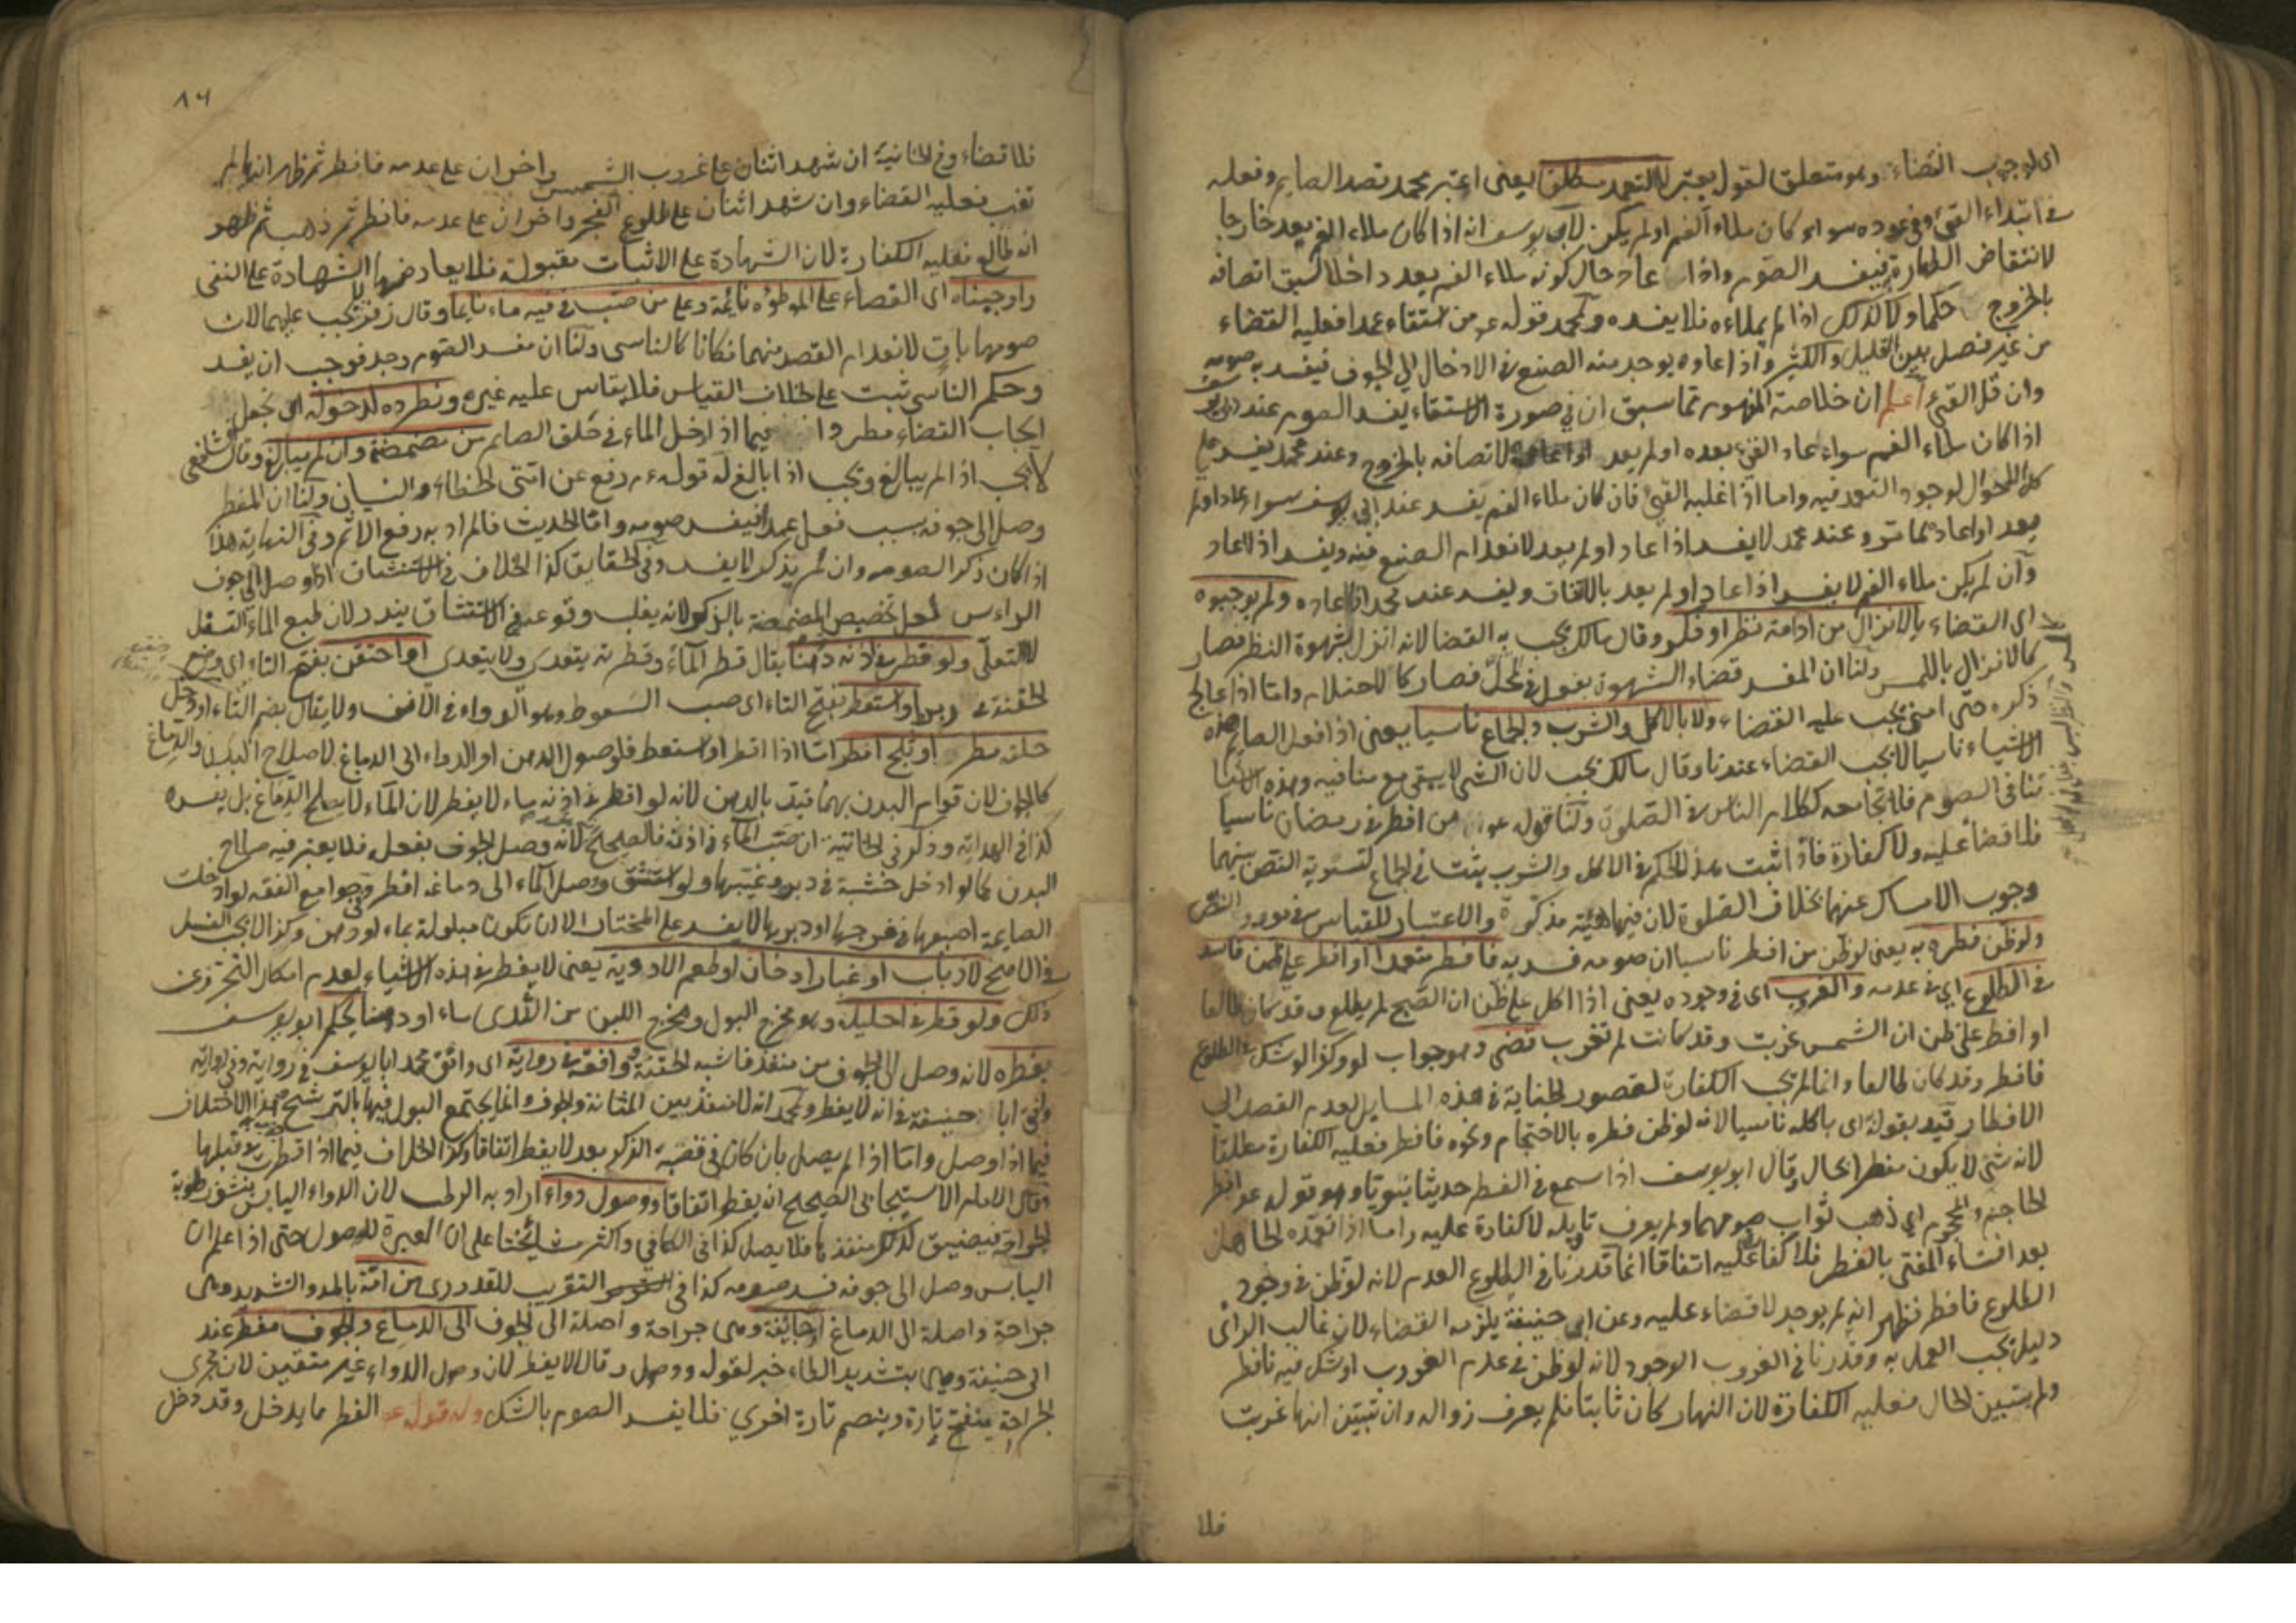 اى لوجوب القضاء وهو متعلق لقوله يعتبر لا التعمد مطلقا يعنى اعتبر محمد قصد الصايم وفعله
فى ابتداء القئ وفى عوده سواء كان ملاء الفم او لم يكن لابى يوسف انه اذا كان ملاء الفم يعد خارجا
لانتقاض الطهارة فيفسد الصوم واذا عاد حال كونه ملاء الفم يعد داخلا لسبق اتصافه
بالخروج حكما ولا كذلك اذا لم يملاءه فلا يفسده ولمحمد قوله عم من استقاء عمدا فعليه القضاء
من غير فصل بين القليل والكثير واذا اعاده يوجد منه الصنع فى الادخال الى الجوف فيفسد به صومه
وان قل القئ اعلم ان خلاصة المفهوم مما سبق ان فى صورة الاستقاء يفسد الصوم عند ابى يوسف
اذا كان ملاء الفم سواء عاد القئ بعده او لم يعد او اعاده لاتصافه بالخروج وعند محمد يفسد على
كل الاحوال لوجود التعمد فيه واما اذا غلبه القئ فان كان ملاء الفم يفسد عند ابى يوسف سواء عاد او لم
يعد او اعاد مما مر وعند محمد لا يفسد اذا عاد او لم يعد لانعدام الصنع منه ويفسد اذا اعاد
وان لم يكن ملاء الفم لا يفسد اذا عاد او لم يعد بالاتفاق ويفسد عند محمد اذا اعاده ولم يوجبوه
اى القضاء بالانزال من ادامة نظر او فكر وقال مالك يجب به القضا لانه انزل بشهوة النظر فصار
كالانزال باللمس ولنا ان المفسد قضاء الشهوة بفعل فى محل فصار كالاحتلام واما اذا عالج
ذكره حتى امنى يجب عليه القضاء ولا بالاكل والشرب والجماع ناسيا يعنى اذا فعل الصايم هذه
الاشياء ناسيا لا يجب القضاء عندنا وقال مالك يجب لان الشئ لا يبقى مع منافيه وهذه الاشيا
تنافى الصوم فلا تجامعه ككلام الناس فى الصلوة ولنا قوله عم من افطر فى رمضان ناسيا
فلا قضا عليه ولا كفارة فاذا ثبت هذا الحكم فى الاكل والشرب يثبت فى الجماع لتسوية النص بينهما
وجوب الامساك عنهما بخلاف الصلوة لان فيها هيئة مذكرة والاعتبار للقياس فى مورد النص
ولو ظن فطره به يعنى لو ظن من افطر ناسيا ان صومه فسد به فافطر متعمدا او افطر على ظن فاسد
فى الطلوع اى فى عدمه والغروب اى فى وجوده يعنى اذا اكل على ظن ان الصبح لم يطلع وقد كان طالعا
او افطر على ظن ان الشمس غربت وقد كانت لم تغرب قضى وهو جواب لو وكذا لو شك فى الطلوع
فافطر وقد كان طالعا وانما لم تجب الكفارة لقصور الجناية فى هذه المسايل لعدم القصد الى
الافطار قيد بقوله اى باكله ناسيا لانه لو ظن فطره بالاحتجام ونحوه فافطر فعليه الكفارة مطلقا
لانه شئ لا يكون مفطرا بحال وقال ابو يوسف اذا سمع فى الفطر حديثا نبويا وهو قوله عم افطر
الحاجم والمحجوم اى ذهب ثواب صومهما ولم يعرف تاويله لا كفارة عليه واما اذا تعمده الجاهل
بعد افتاء المفتى بالفطر فلا كفارة عليه اتفاقا انما قدرنا فى الطلوع العدم لانه لو ظن فى وجود
الطلوع فافطر فظهر انه لم يوجد لا قضاء عليه وعن ابى حنيفة يلزمه القضاء لان غالب الراى
دليل يجب العمل به وقدرنا فى الغروب الوجود لانه لو ظن فى عدم الغروب او شك فيه فافطر
ولم يتبين الحال فعليه الكفارة لان النهار كان ثابتا فلم يعرف زواله وان تبين انها غربت
فلا
٨٦
فلا قضاء وفى الخانية ان شهد اثنان على غروب الشمس واخران على عدمه فافطر ثم ظهر انها لم
تغب فعليه القضاء وان شهد اثنان على طلوع الفجر واخران على عدمه فافطر ثم ظهر
انه طالع فعليه الكفارة لان الشهادة على الاثبات مقبولة فلا يعارضها الشهادة على النفى
واوجبناه اى القضاء على الموطؤه نائمة وعلى من صب فى فيه ماء نايما وقال زفر لا يجب عليهما لان
صومهما بات لانعدام القصد منهما فكانا كالناسى ولنا ان مفسد الصوم وجد فوجب ان يفسد
وحكم الناسى ثبت على خلاف القياس فلا يقاس عليه غيره ونطرده لدخوله اى نجعل
ايجاب القضاء مطردا فيما اذا دخل الماء فى حلق الصايم من مضمضة وان لم يبالغ وقال الشافعى
لا يجب اذا لم يبالغ ويجب اذا بالغ له قوله عم رفع عن امتى الخطاء والنسيان ولنا ان المفطر
وصل الى جوفه بسبب فعل عمدا فيفسد صومه واما الحديث فالمراد به رفع الاثم وفى النهاية هذا
اذا كان ذكر الصوم وان لم يذكر لا يفسد وفى الحقايق كذا الخلاف فى الاستنشاق اذا وصل الى جوف
الراءس لعل تخصيص المضمضة بالذكر لانه يغلب وقوعه فى الاستنشاق يندر لان طبع الماء التسفل
لا التعلى ولو قطر فى اذنه دهنا يقال قطر الماء وقطرته يتعدى ولا يتعدى او احتقن بفتح التاء اى وضع
الحقنة فى دبره او استعط بفتح التاء اى صب السعوط وهو الدواء فى الانف ولا يقال بضم التاء او دخل
حلقه مطر او ثلج افطر اما اذا اقطر او استعط فلوصول الدهن او الدواء الى الدماغ لاصلاح البدن والدماغ
كالجوف لان قوام البدن بهما قيد بالدهن لانه لو اقطر فى اذنه ماء لا يفطر لان الماء لا يصلح الدماغ بل يفسده
كذا فى الهداية وذكر فى الخانية ان صب الماء فى اذنه فالصحيح لانه وصل الجوف بفعله فلا يعتبر فيه صلاح
البدن كما لو ادخل خشبة فى دبره وغيبها ولو استنشق ووصل الماء الى دماغه افطر وفى جوامع الفقه لو ادخلت
الصايمة اصبعها فى فرجها او دبرها لا يفسد على المختار الا ان تكون مبلولة بماء او دهن وكذا لا يجب الغسل
فى الاصح لا ذباب او غبار او دخان او طعم الادوية يعنى لا يفطر فى هذه الاشياء لعدم امكان التحرز عن
ذلك ولو قطر فى احليله وهو مخرج البول ومخرج اللبن من الثدى ماء او دهنا يحكم ابو يوسف
بفطره لانه وصل الى الجوف من منفذ فاشبه الحقنة ووافقه فى رواية اى وافق محمد ابا يوسف فى رواية وفى رواية
وافق ابا حنيفة فى انه لا يفطر ولمحمد انه لا منفذ بين المثانة والجوف وانما يجتمع البول فيها بالترشح هذا الاختلاف
فيما اذا وصل واما اذا لم يصل بان كان فى قصبة الذكر بعد لا يفطر اتفاقا وكذا الخلاف فيما اذا قطرت فى قبلها
وقال الامام الاسبيجابى الصحيح انه يفطر اتفاقا ووصول دواء اراد به الرطب لان الدواء اليابس ينشف رطوبة
الجراحة فيضيق لذلك منفذها فلا يصل كذا فى الكافى واكثر مشايخنا على ان العبرة للوصول حتى اذا علم ان
اليابس وصل الى جوفه فسد صومه كذا فى التقريب للقدورى من آمة بالمد والتشديد وهى
جراحة واصلة الى الدماغ او جائفة وهى جراحة واصلة الى الجوف الى الدماغ والجوف مفطر عند
ابى حنيفة وهى بتشديد الطاء خبر لقوله ووصول وقالا لا يفطر لان وصول الدواء غير متيقن لان مجرى
الجراحة ينفتح تارة وينضم تارة اخرى فلا يفسد الصوم بالشك وله قوله عم الفطر مما يدخل وقد دخل